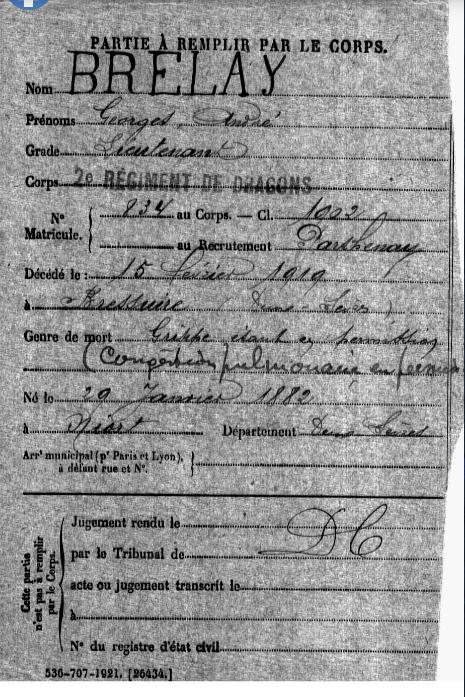 PARTIE À REMPLIR PAR LE CORPS.
Nom BRELAY
Prénoms Georges, André
Grade Lieutenant
Corps 2e RÉGIMENT DE DRAGONS
N° Matricule. 834 au Corps. — Cl. 1902
au Recrutement Parthenay
Décédé le : 15 février 1919
à Bressuire (Deux-Sèvres)
Genre de mort Grippe étant en permission
(Congestion pulmonaire en
Né le 29 Janvier 1882
à Niort Département Deux Sèvres
Arrt municipal (pr Paris et Lyon),
à défaut rue et N°.
Cette partie
n'est pas à remplir
par le Corps.
Jugement rendu le
par le Tribunal de
DC
acte ou jugement transcrit le
à
N° du registre d'état civil
536-707-1921. [26434.]